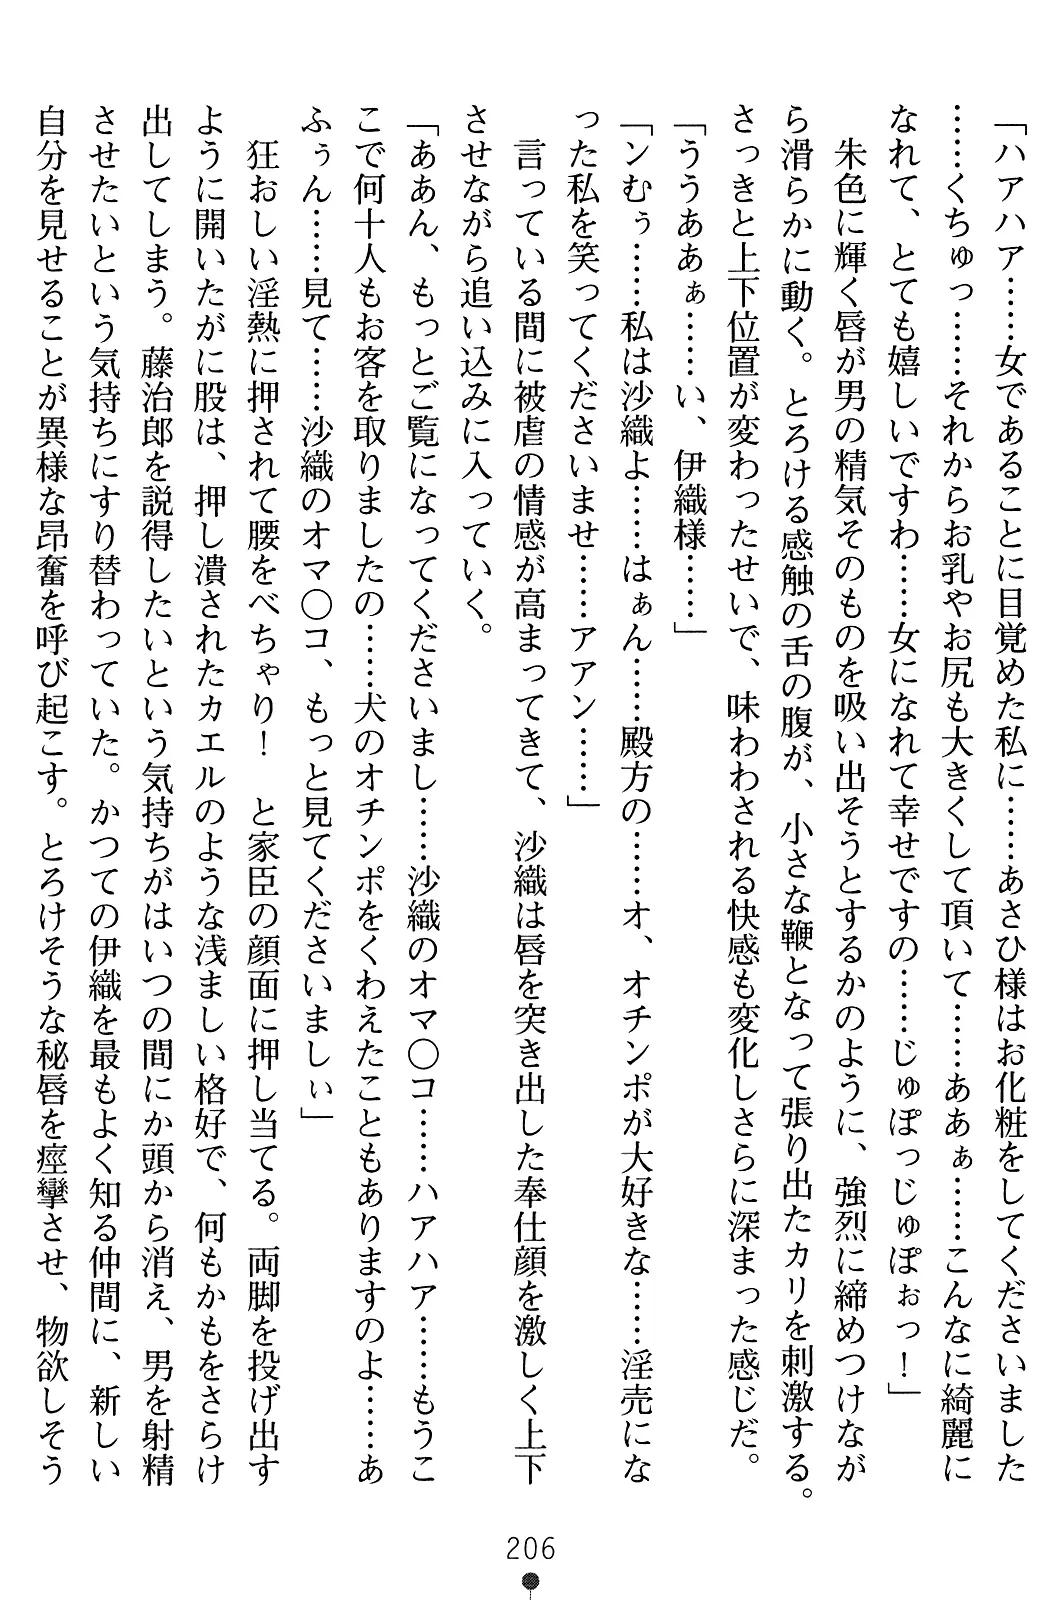 「ハアハア……女であることに目覚めた私に……あさひ様はお化粧をしてくださいました
……くちゅっ……それからお乳やお尻も大きくして頂いて……あぁぁ……こんなに綺麗に
なれて、とても嬉しいですわ……女になれて幸せですの……じゅぽっじゅぽぉっ！」
　朱色に輝く唇が男の精気そのものを吸い出そうとするかのように、強烈に締めつけなが
ら滑らかに動く。とろける感触の舌の腹が、小さな鞭となって張り出たカリを刺激する。
さっきと上下位置が変わったせいで、味わわされる快感も変化しさらに深まった感じだ。
「ううあぁぁ……い、伊織様……」
「ンむぅ……私は沙織よ……はぁん……殿方の……オ、オチンポが大好きな……淫売にな
った私を笑ってくださいませ……アアン……」
　言っている間に被虐の情感が高まってきて、沙織は唇を突き出した奉仕顔を激しく上下
させながら追い込みに入っていく。
「ああん、もっとご覧になってくださいまし……沙織のオマ〇コ……ハアハア……もうこ
こで何十人もお客を取りましたの……犬のオチンポをくわえたこともありますのよ……あ
ふぅん……見て……沙織のオマ〇コ、もっと見てくださいましぃ」
　狂おしい淫熱に押されて腰をべちゃり！　と家臣の顔面に押し当てる。両脚を投げ出す
ように開いたがに股は、押し潰されたカエルのような浅ましい格好で、何もかもをさらけ
出してしまう。藤治郎を説得したいという気持ちがはいつの間にか頭から消え、男を射精
させたいという気持ちにすり替わっていた。かつての伊織を最もよく知る仲間に、新しい
自分を見せることが異様な昂奮を呼び起こす。とろけそうな秘唇を痙攣させ、物欲しそう
206